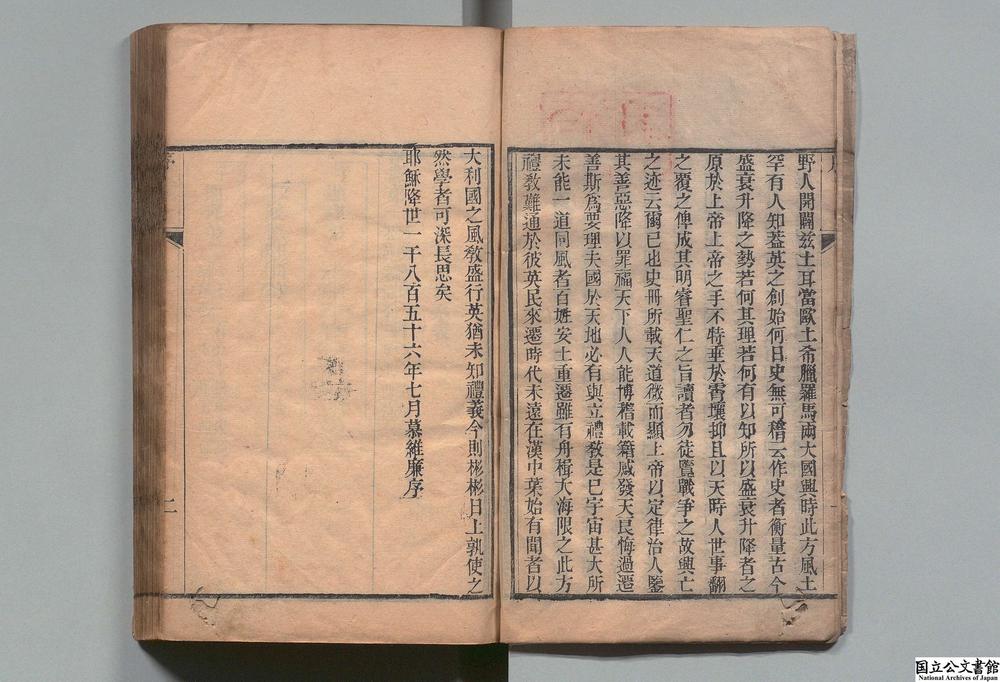 野人開闢兹土耳當歐土希臘羅馬兩大國興時此方風土
罕有人知葢英之創始何日史無可稽云作史者衡量古今
盛衰升降之勢若何其理若何有以知所以盛衰升降者之
原於上帝上帝之手不特垂於霄壤抑且以天時人世事翻
之覆之俾成其明睿聖仁之旨讀者勿徒覽戰爭之故興亡
之迹云爾已也史冊所載天道微而顯上帝以定律治人鑒
其善惡降以罪福天下人人能博稽載籍感發天良悔過遷
善斯爲要理夫國於天地必有與立禮敎是已宇宙甚大所
未能一道同風者百姓安土重遷雖有舟楫大海限之此方
禮敎難通於彼英民來遷時代未遠在漢中葉始有聞者以
大利國之風敎盛行英猶未知禮義今則彬彬日上孰使之
然學者可深長思矣
耶穌降世一千八百五十六年七月慕維廉序
二
国立公文書館
National Archives of Japan